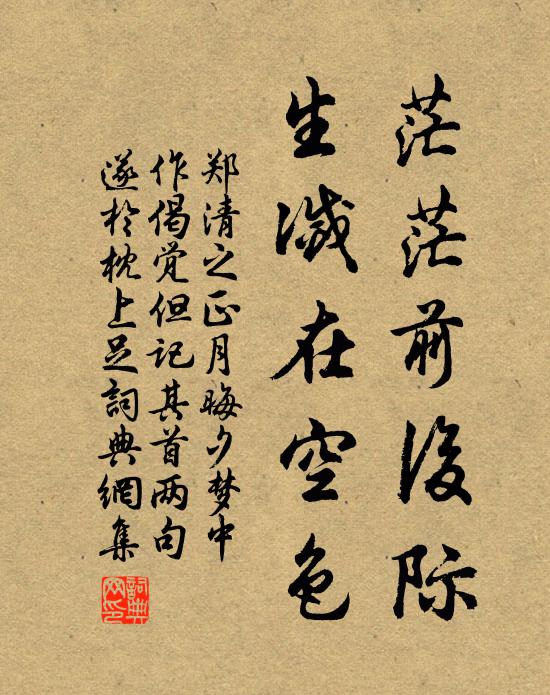 茫茫前後际
生滅在空色
郑清之正月晦夕梦中
作偈觉但记其首两句
遂於枕上足詞典網集
詞典
网印